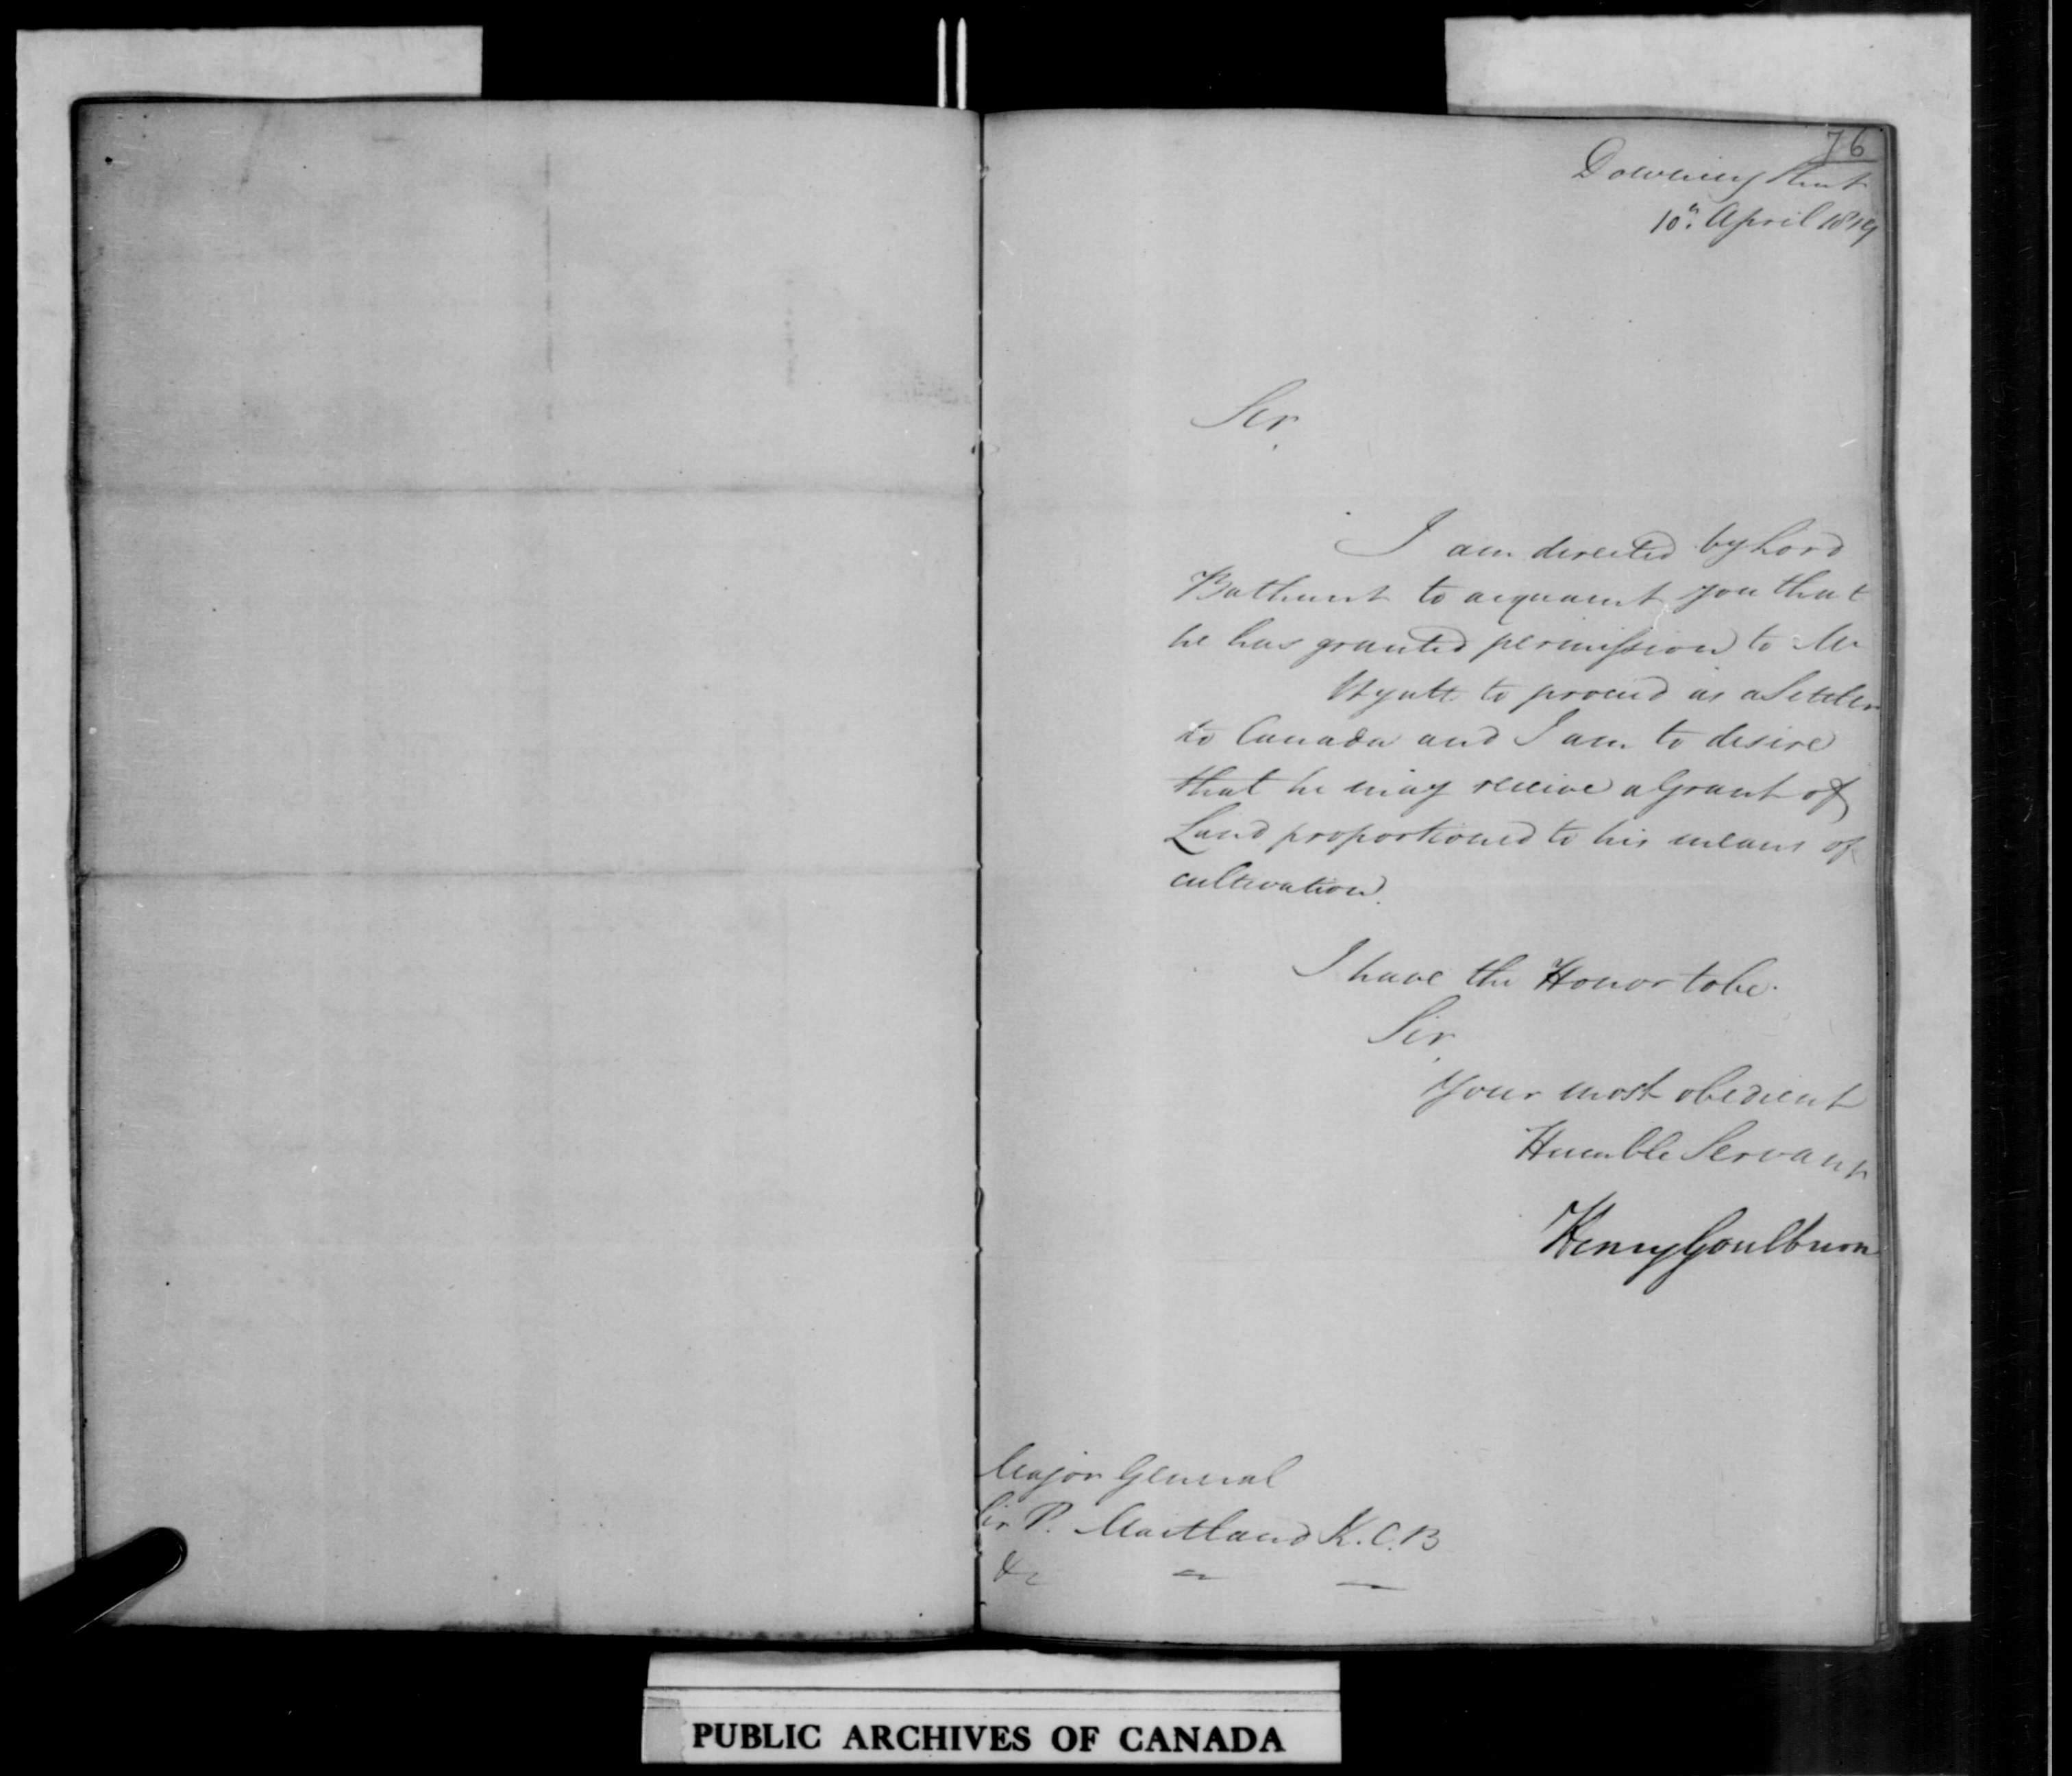 76
Downing Street
10th April 1819
Sir,
I am directed by Lord
Bathurst to acquaint you that
he has granted permission to Mr
Wyatt to proceed as a Settler
to Canada and I am to desire
that he may receive a Grant of
Land proportioned to his means of
cultivation.
I have the Honor to be.
Sir,
Your most obedient
Humble Servant
Henry Goulburn
Major General
Sir P. Maitland K.C.B
&c
PUBLIC ARCHIVES OF CANADA